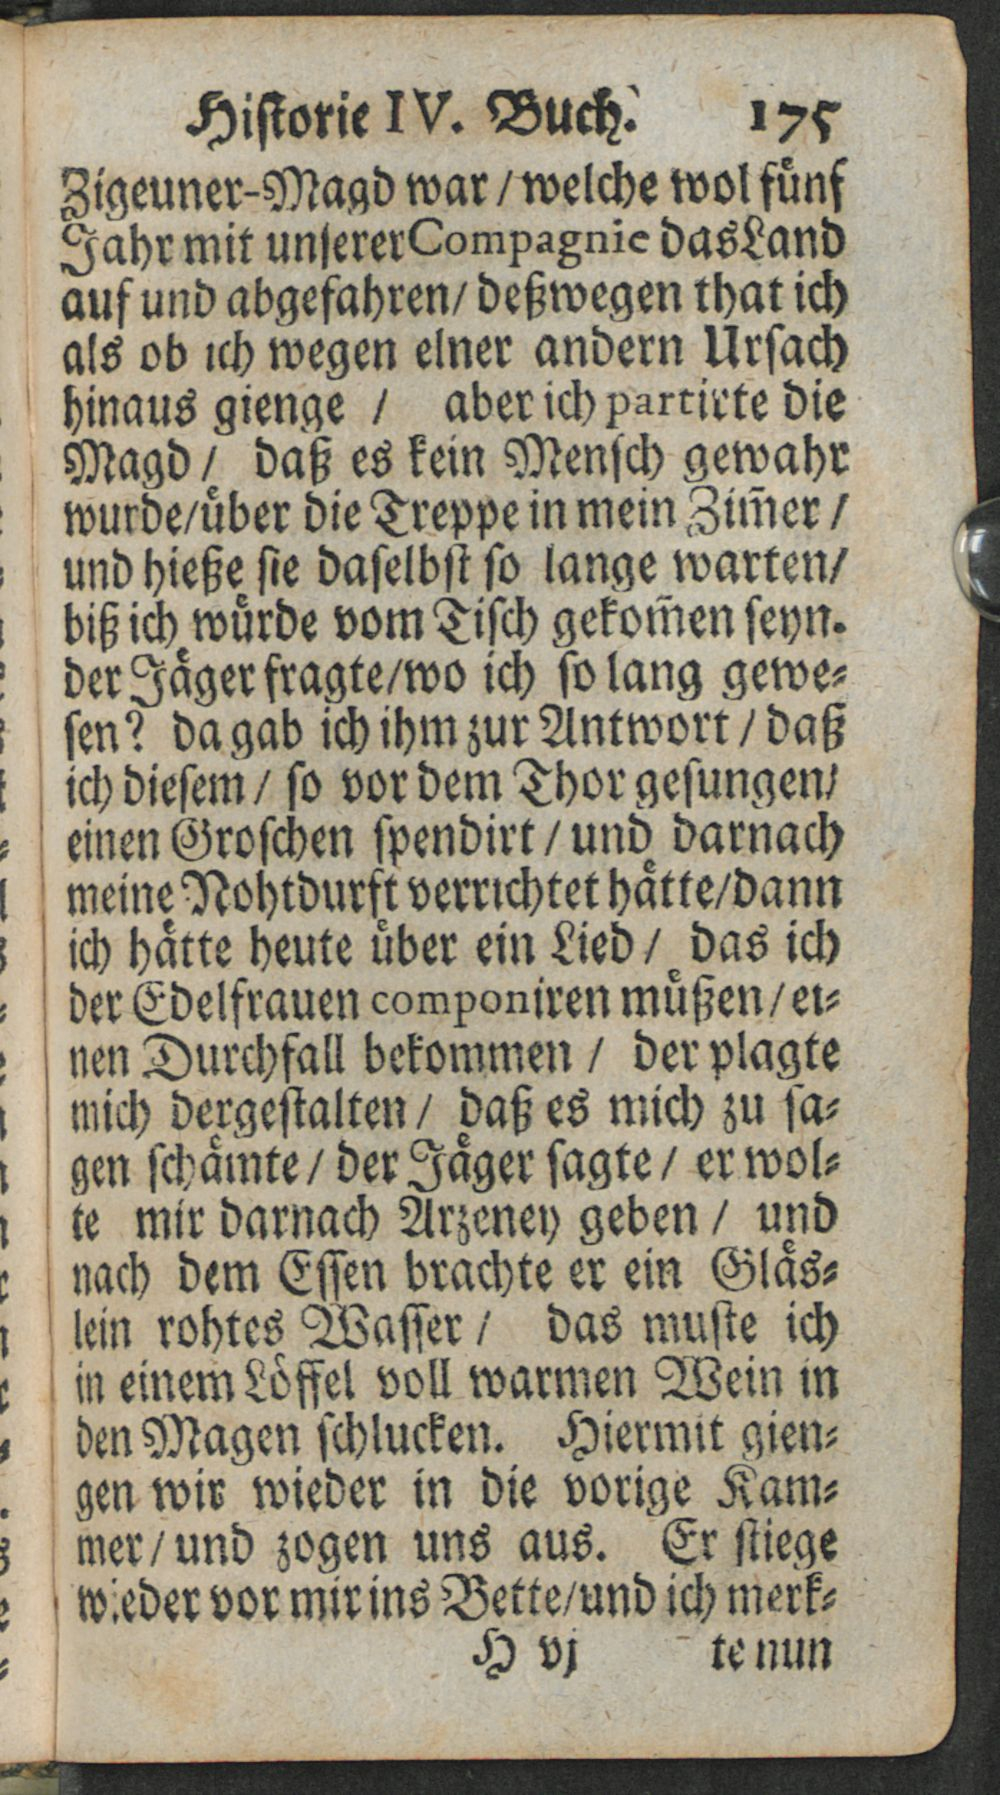 Historie IV. Buch. 175
Zigeuner-Magd war / welche wol fünf
Jahr mit unserer Compagnie das Land
auf und abgefahren / deßwegen that ich
als ob ich wegen elner andern Ursach
hinaus gienge / aber ich partirte die
Magd / daß es kein Mensch gewahr
wurde / über die Treppe in mein Zim̃er /
und hieße sie daselbst so lange warten /
biß ich würde vom Tisch gekom̃en seyn.
der Jäger fragte / wo ich so lang gewe-
sen? da gab ich ihm zur Antwort / daß
ich diesem / so vor dem Thor gesungen /
einen Groschen spendirt / und darnach
meine Nohtdurft verrichtet hätte / dann
ich hätte heute über ein Lied / das ich
der Edelfrauen componiren müßen / ei-
nen Durchfall bekommen / der plagte
mich dergestalten / daß es mich zu sa-
gen schämte / der Jäger sagte / er wol-
te mir darnach Arzeney geben / und
nach dem Essen brachte er ein Gläs-
lein rohtes Wasser / das muste ich
in einem Löffel voll warmen Wein in
den Magen schlucken. Hiermit gien-
gen wir wieder in die vorige Kam-
mer / und zogen uns aus. Er stiege
wieder vor mir ins Bette / und ich merk-
H vj te nun